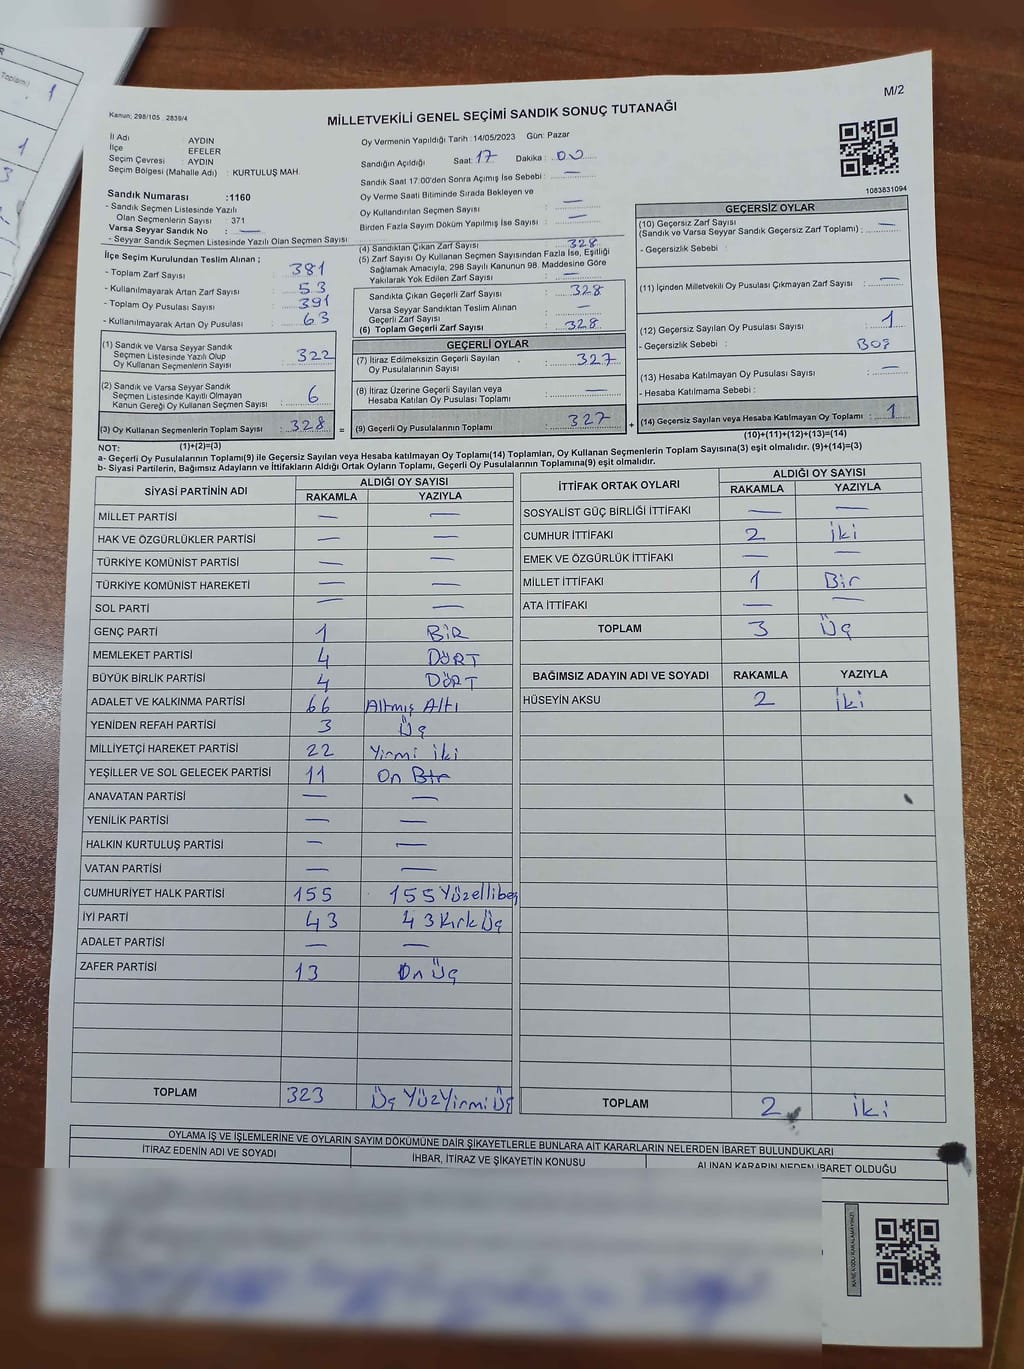 M/2
Kanun: 298/105 2839/4
MİLLETVEKİLİ GENEL SEÇİMİ SANDIK SONUÇ TUTANAĞI
İl Adı : AYDIN
İlçe : EFELER
Seçim Çevresi : AYDIN
Seçim Bölgesi (Mahalle Adı) : KURTULUŞ MAH.
Sandık Numarası :1160
- Sandık Seçmen Listesinde Yazılı
Olan Seçmenlerin Sayısı : 371
Varsa Seyyar Sandık No : —
- Seyyar Sandık Seçmen Listesinde Yazılı Olan Seçmen Sayısı
İlçe Seçim Kurulundan Teslim Alınan ;
- Toplam Zarf Sayısı : 381
- Kullanılmayarak Artan Zarf Sayısı : 53
- Toplam Oy Pusulası Sayısı : 391
- Kullanılmayarak Artan Oy Pusulası : 63
(1) Sandık ve Varsa Seyyar Sandık
Seçmen Listesinde Yazılı Olup
Oy Kullanan Seçmenlerin Sayısı : 322
(2) Sandık ve Varsa Seyyar Sandık
Seçmen Listesinde Kayıtlı Olmayan
Kanun Gereği Oy Kullanan Seçmen Sayısı : 6
(3) Oy Kullanan Seçmenlerin Toplam Sayısı : 328
Oy Vermenin Yapıldığı Tarih : 14/05/2023 Gün: Pazar
Sandığın Açıldığı Saat: 17 Dakika : 00
Sandık Saat 17.00'den Sonra Açımış İse Sebebi : —
Oy Verme Saati Bitiminde Sırada Bekleyen ve
Oy Kullandırılan Seçmen Sayısı : —
Birden Fazla Sayım Döküm Yapılmış İse Sayısı : —
(4) Sandıktan Çıkan Zarf Sayısı : 328
(5) Zarf Sayısı Oy Kullanan Seçmen Sayısından Fazla İse, Eşitliği
Sağlamak Amacıyla, 298 Sayılı Kanunun 98. Maddesine Göre
Yakılarak Yok Edilen Zarf Sayısı : —
Sandıkta Çıkan Geçerli Zarf Sayısı : 328
Varsa Seyyar Sandıktan Teslim Alınan
Geçerli Zarf Sayısı : —
(6) Toplam Geçerli Zarf Sayısı : 328
GEÇERLİ OYLAR
(7) İtiraz Edilmeksizin Geçerli Sayılan
Oy Pusulalarının Sayısı : 327
(8) İtiraz Üzerine Geçerli Sayılan veya
Hesaba Katılan Oy Pusulası Toplamı : —
= (9) Geçerli Oy Pusulalarının Toplamı : 327
1083831094
GEÇERSİZ OYLAR
(10) Geçersiz Zarf Sayısı
(Sandık ve Varsa Seyyar Sandık Geçersiz Zarf Toplamı) : —
- Geçersizlik Sebebi :
(11) İçinden Milletvekili Oy Pusulası Çıkmayan Zarf Sayısı : —
(12) Geçersiz Sayılan Oy Pusulası Sayısı : 1
- Geçersizlik Sebebi : BOŞ
(13) Hesaba Katılmayan Oy Pusulası Sayısı : —
- Hesaba Katılmama Sebebi :
+ (14) Geçersiz Sayılan veya Hesaba Katılmayan Oy Toplamı : 1
(1)+(2)=(3)
(10)+(11)+(12)+(13)=(14)
NOT:
a- Geçerli Oy Pusulalarının Toplamı(9) ile Geçersiz Sayılan veya Hesaba Katılmayan Oy Toplamı(14) Toplamları, Oy Kullanan Seçmenlerin Toplam Sayısına(3) eşit olmalıdır. (9)+(14)=(3)
b- Siyasi Partilerin, Bağımsız Adayların ve İttifakların Aldığı Ortak Oyların Toplamı, Geçerli Oy Pusulalarının Toplamına(9) eşit olmalıdır.
SİYASİ PARTİNİN ADI ALDIĞI OY SAYISI
RAKAMLA YAZIYLA
MİLLET PARTİSİ — —
HAK VE ÖZGÜRLÜKLER PARTİSİ — —
TÜRKİYE KOMÜNİST PARTİSİ — —
TÜRKİYE KOMÜNİST HAREKETİ — —
SOL PARTİ — —
GENÇ PARTİ 1 BİR
MEMLEKET PARTİSİ 4 DÖRT
BÜYÜK BİRLİK PARTİSİ 4 DÖRT
ADALET VE KALKINMA PARTİSİ 66 Altmış Altı
YENİDEN REFAH PARTİSİ 3 Üç
MİLLİYETÇİ HAREKET PARTİSİ 22 Yirmi iki
YEŞİLLER VE SOL GELECEK PARTİSİ 11 On Bir
ANAVATAN PARTİSİ — —
YENİLİK PARTİSİ — —
HALKIN KURTULUŞ PARTİSİ — —
VATAN PARTİSİ — —
CUMHURİYET HALK PARTİSİ 155 155 Yüzellibeş
İYİ PARTİ 43 43 Kırk Üç
ADALET PARTİSİ — —
ZAFER PARTİSİ 13 On Üç
TOPLAM 323 Üç YüzYirmi Üç
İTTİFAK ORTAK OYLARI ALDIĞI OY SAYISI
RAKAMLA YAZIYLA
SOSYALİST GÜÇ BİRLİĞİ İTTİFAKI — —
CUMHUR İTTİFAKI 2 iki
EMEK VE ÖZGÜRLÜK İTTİFAKI — —
MİLLET İTTİFAKI 1 Bir
ATA İTTİFAKI — —
TOPLAM 3 Üç
BAĞIMSIZ ADAYIN ADI VE SOYADI RAKAMLA YAZIYLA
HÜSEYİN AKSU 2 iki
TOPLAM 2 iki
OYLAMA İŞ VE İŞLEMLERİNE VE OYLARIN SAYIM DÖKÜMÜNE DAİR ŞİKAYETLERLE BUNLARA AİT KARARLARIN NELERDEN İBARET BULUNDUKLARI
İTİRAZ EDENİN ADI VE SOYADI İHBAR, İTİRAZ VE ŞİKAYETİN KONUSU ALINAN KARARIN NEDEN İBARET OLDUĞU